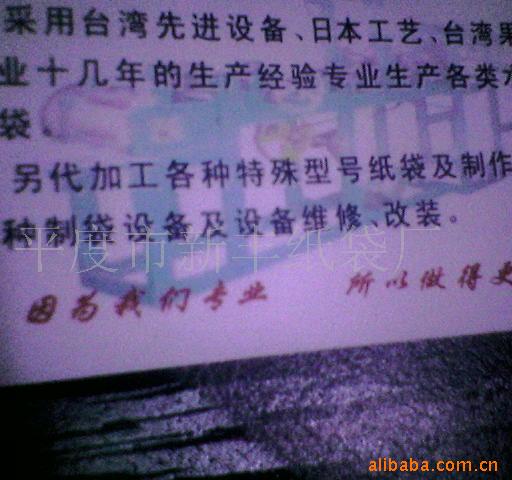 采用台湾先进设备、日本工艺、台湾果
业十几年的生产经验专业生产各类
袋。
另代加工各种特殊型号纸袋及制作
种制袋设备及设备维修、改装。
平度市新丰纸袋厂
因为我们专业 所以做得更
alibaba.com.cn